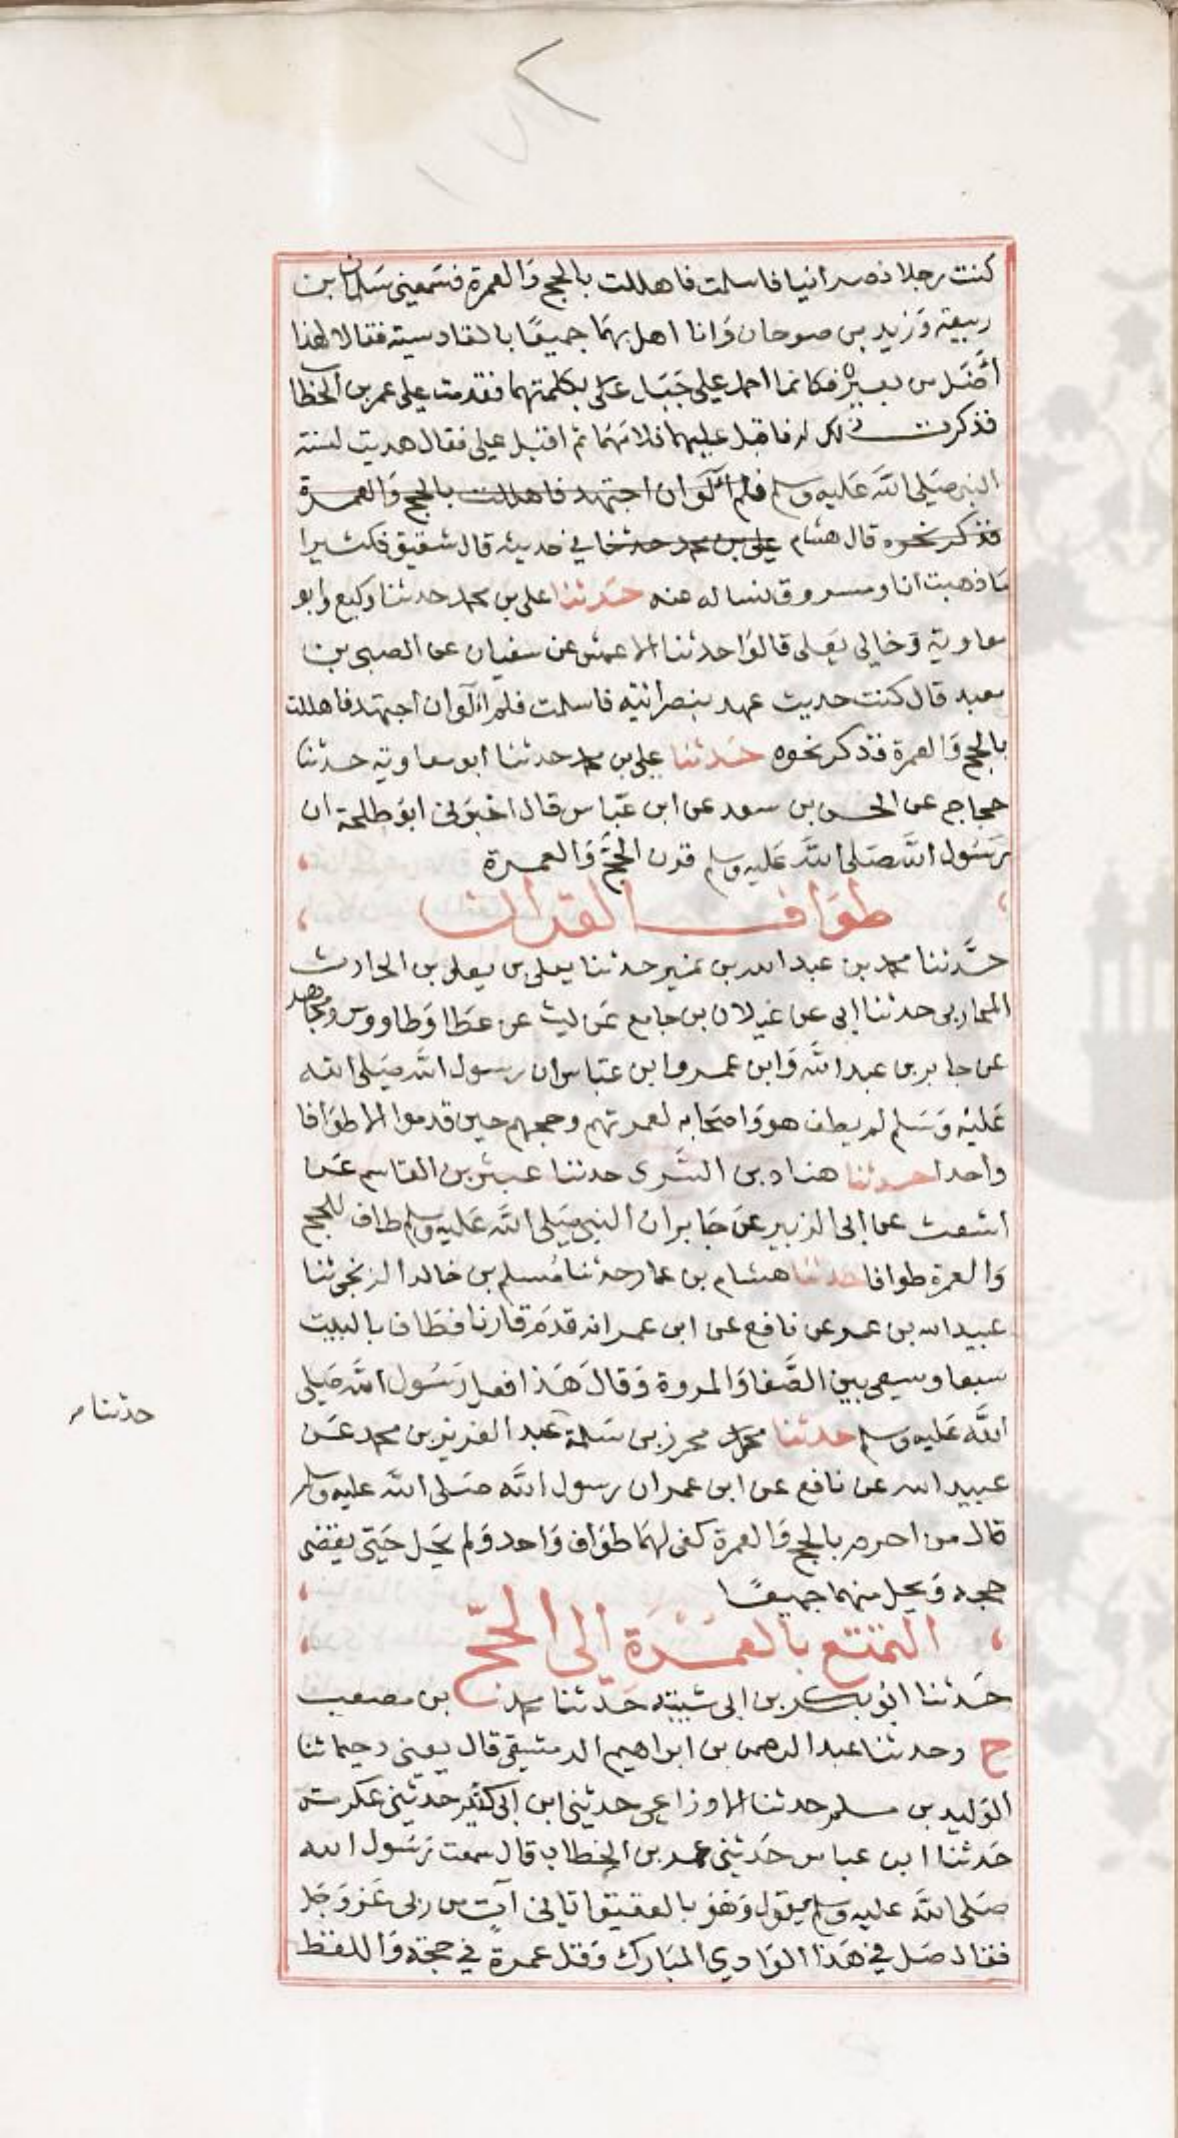 كنت رجلا نصرانيا فاسلمت فاهللت بالحج وَالعمرة فسَمعنى سَلمان بن
ربيعة وَزيد بن صوحان وَانا اهل بهمَا جميعًا بالقادسية فقالا لهذا
أضَل من بعيره فكانما احملا على جَبَلا عَلَى بكلمتهما فقدمت على عمر بن الخطا
فذكرت ذلك له فاقبل عليهما فلامَهُمَا ثم اقبل على فقال هديت لسنة
النبى صَلى الله عَليه وسلم فلم آلوَ ان اجتهد فاهللت بالحج وَالعمرة
فذكر نحوه قال هشام على بن محمد حدثنا في حديثه قال شقيق فكثيرا
مَا ذهبت انا ومسروق نساله عنه حَدثنا على بن محمد حدثنا وكيع وابو
معاوية وَخالى يَعلى قالوَا حدثنا الاعمش عن سفيان عن الصبى بن
معبد قال كنت حديث عهد بنصرانية فاسلمت فلم اۤلوَ ان اجتهد فاهللت
بالحج وَالعمرة فذكر نحوه حَدثنا على بن محمد حدثنا ابو معاوية حدثنا
حجاج عن الحسن بن سعد عن ابن عَباس قال اخبَرنى ابوَ طلحة ان
رَسُول الله صَلى الله عَليه وسلم قرن الحجَّ وَالعمرة
طوَاف القران
حدَّثنا محمد بن عبد الله بن نمير حدثنا يعلى بن يعلى بن الحارث
المحاربى حدثنا ابى عن غيلان بن جامع عَن ليث عن عَطا وَطاووس ومجاهد
عن جابر بن عبد الله وَابن عمر وابن عبَاس ان رسول الله صَلى الله
عَليْه وَسَلم لم يطف هو وَاصحَابه لعمرتهم وحجهم حين قدموا الا طوَافا
واحدا حدثنا هناد بن السَّرى حدثنا عبثر بن القاسم عَن
اشعث عن ابى الزبير عن جَابر ان النبى صَلى الله عَليه وسلم طاف للحج
وَالعمرة طوافا حدثنا هشام بن عمار حدثنا مُسلم بن خالد الزنجى ثنا
عبيد الله بن عمر عن نافع عن ابن عمر انه قدمَ قارنا فطَاف بالبيت
سبعا وسعى بين الصَّفا وَالمروة وَقالَ هَذا فعل رَسُول الله صَلى
الله عَليه وسلم حدثنا محرز بن سَلمة عبد العزيز بن محمد عَن
حدثنا م
عبيد الله عن نافع عن ابن عمر ان رسول الله صَلى الله عليه وسلم
قال من احرم بالحج وَالعمرة كفى لهمَا طوَاف وَاحد وَلم يَحل حَتى يقضى
حجه وَيحل منهما جميعًا
التمتع بالعمْرَة إلى الحَجّ
حَدثنا ابُو بكر بن ابى شيبة حَدّثنا محمد بن مصعب
ح وحدثنا عبد الرحمن بن ابراهيم الدمشقى قال يعنى دحيما ثنا
الوَليد بن مسلم حدثنا الاوزاعى حدثنى ابن ابى كثير حَدثنى عكرمة
حَدثنا ابن عباس حَدثنى عمر بن الخطاب قال سمعت رَسُول الله
صَلى الله عليه وسلم يقول وَهَو بالعقيق اتانى آت من ربى عَز وَجَل
فقال صَل في هَذا الوَادي المبَارك وَقل عمرة في حجة وَاللفظ